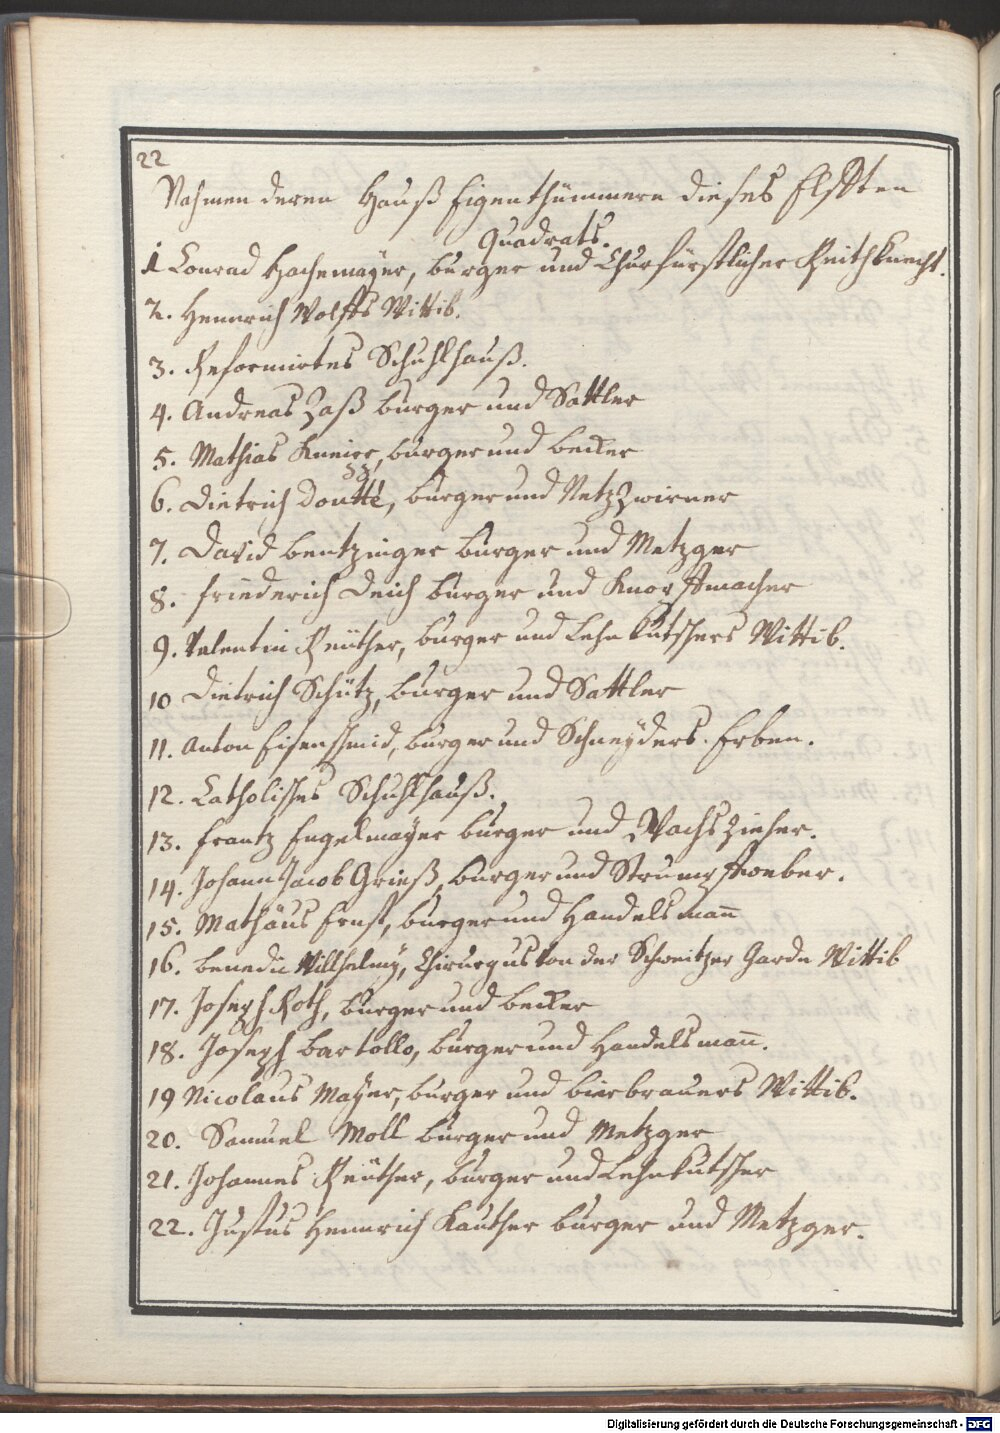 22
Nahmen deren Hauß Eigenthümmere dieses Elfften
Quadrats.
1 Conrad Hachemayer, burger und Churfürstlicher Reithknecht.
2. Hennrich Wolffs Wittib.
3. Reformirtes Schuhlhauß.
4. Andreas Zaß burger und Sattler
5. Mathias Kunier, burger und becker
6. Dietrich Doutté, burger und Netzzwirner
7. David bentzinger burger und Metzger
8. friederich Deich burger und Knopffmacher
9. Valentin Reüther, burger und Lehnkutschers Wittib.
10 Dietrich Schütz, burger und Sattler
11. Anton Eisenschmid, burger und Schneyders Erben.
12. Catholisches Schuhlhauß.
13. frantz Engelmayer burger und Wachszieher.
14. Johann Jacob Grieß, burger und Strumpffweber.
15. Mathäus Ernst, burger und Handelsmann
16. benedic Willhelmy, Chirurgus von der Schweitzer Garde Wittib
17. Joseph Roth, burger und becker
18. Joseph bartollo, burger und Handelsmann.
19 Nicolaus Mayer, burger und bierbrauers Wittib.
20. Samuel Moll burger und Metzger
21. Johannes Reüther, burger und Lehnkutscher
22. Justus Hennrich Kauther burger und Metzger.
Digitalisierung gefördert durch die Deutsche Forschungsgemeinschaft - DFG